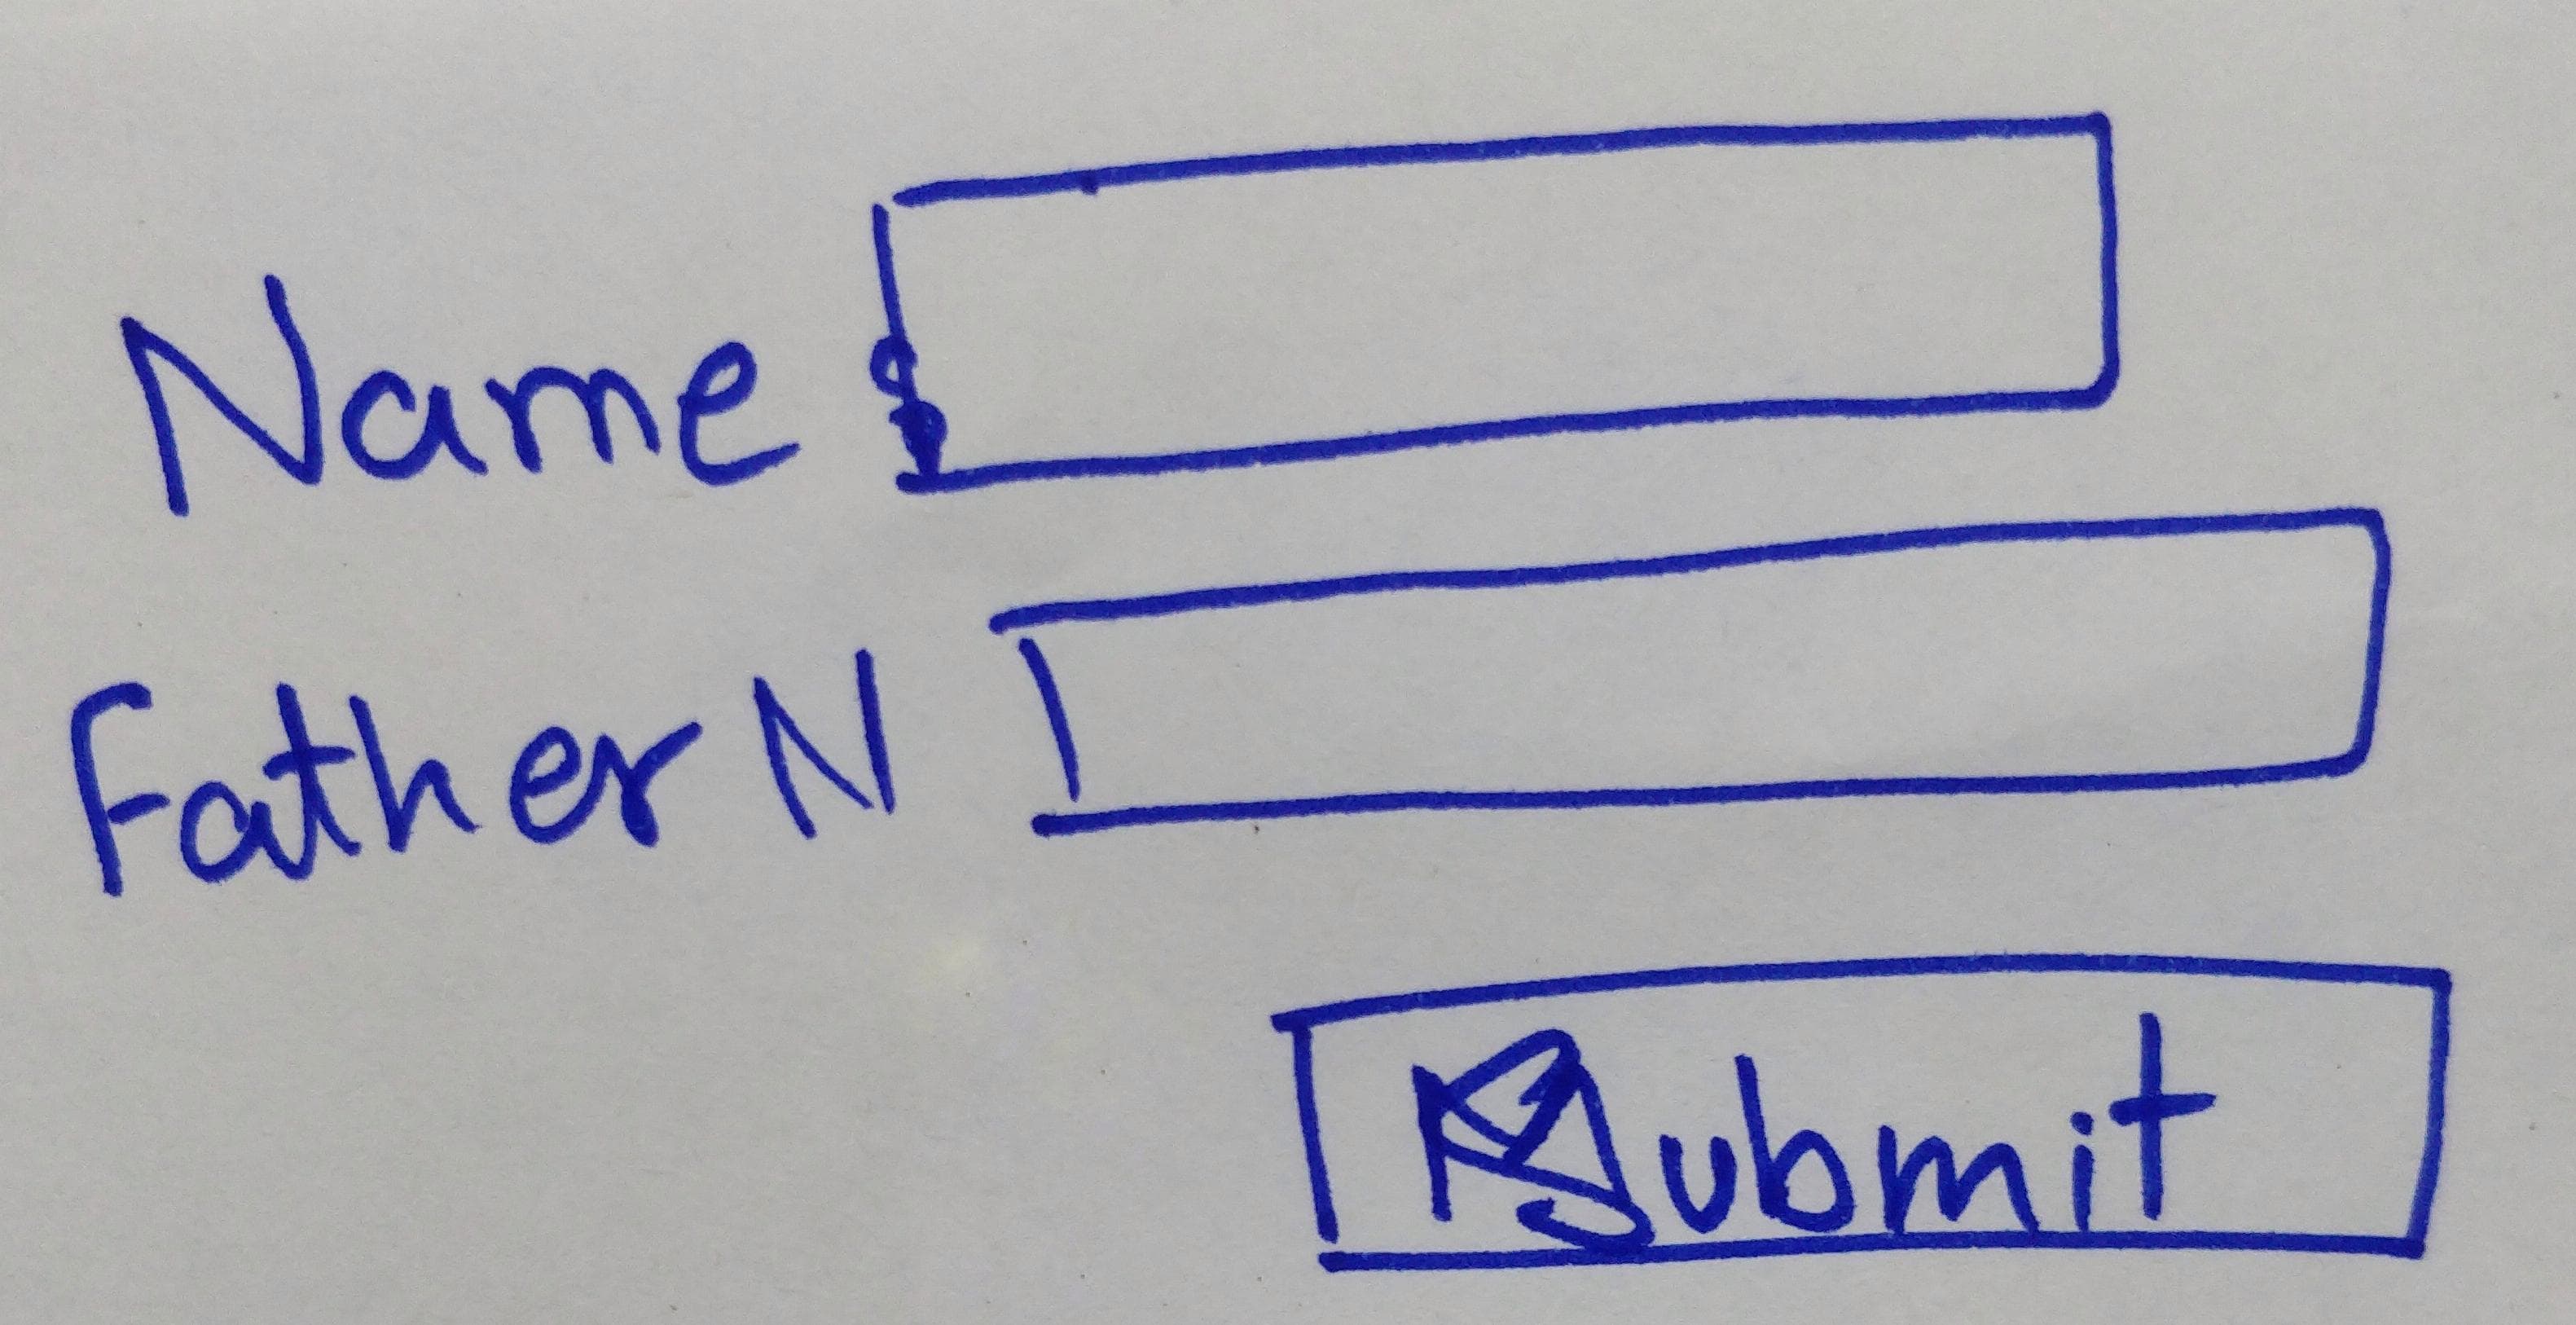 Name
Father N
Submit